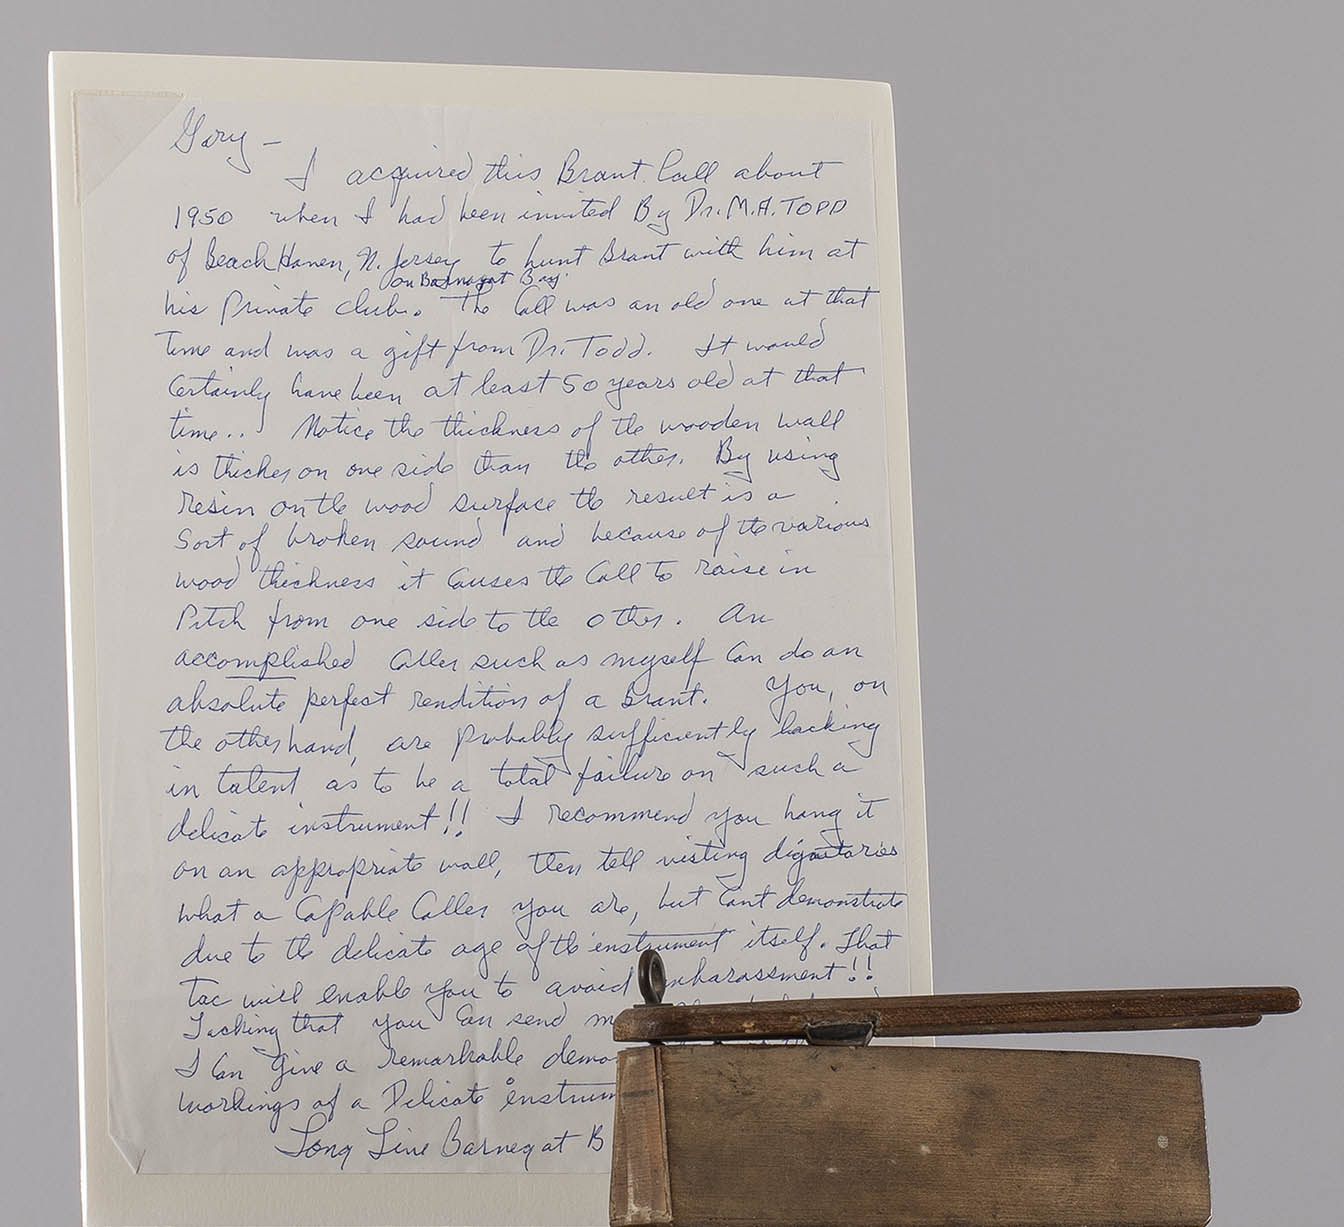 Gary –
I acquired this Brant Call about
1950 when I had been invited By Dr. M.A. TODD
of Beach Haven, N. Jersey to hunt Brant with him at
on Barnagat Bay
his Private club. The Call was an old one at that
Time and was a gift from Dr. Todd. It would
Certainly have been at least 50 years old at that
time.. Notice the thickness of the wooden wall
is thicker on one side than the other. By using
resin on the wood surface the result is a
Sort of broken sound and because of the various
wood thickness it Causes the Call to raise in
Pitch from one side to the other. An
accomplished Caller such as myself Can do an
absolute perfect rendition of a Brant. You, on
the other hand, are probably sufficiently lacking
in talent as to be a total failure on such a
delicate instrument!! I recommend you hang it
on an appropriate wall, then tell visting dignitaries
what a Capable Caller you are, but Cant demonstrate
due to the delicate age of the instrument itself. That
Tac will enable you to avoid embarassment!!
Lacking that you Can send
I Can give a remarkable demo
workings of a Delicate instrum
Long Live Barnegat B